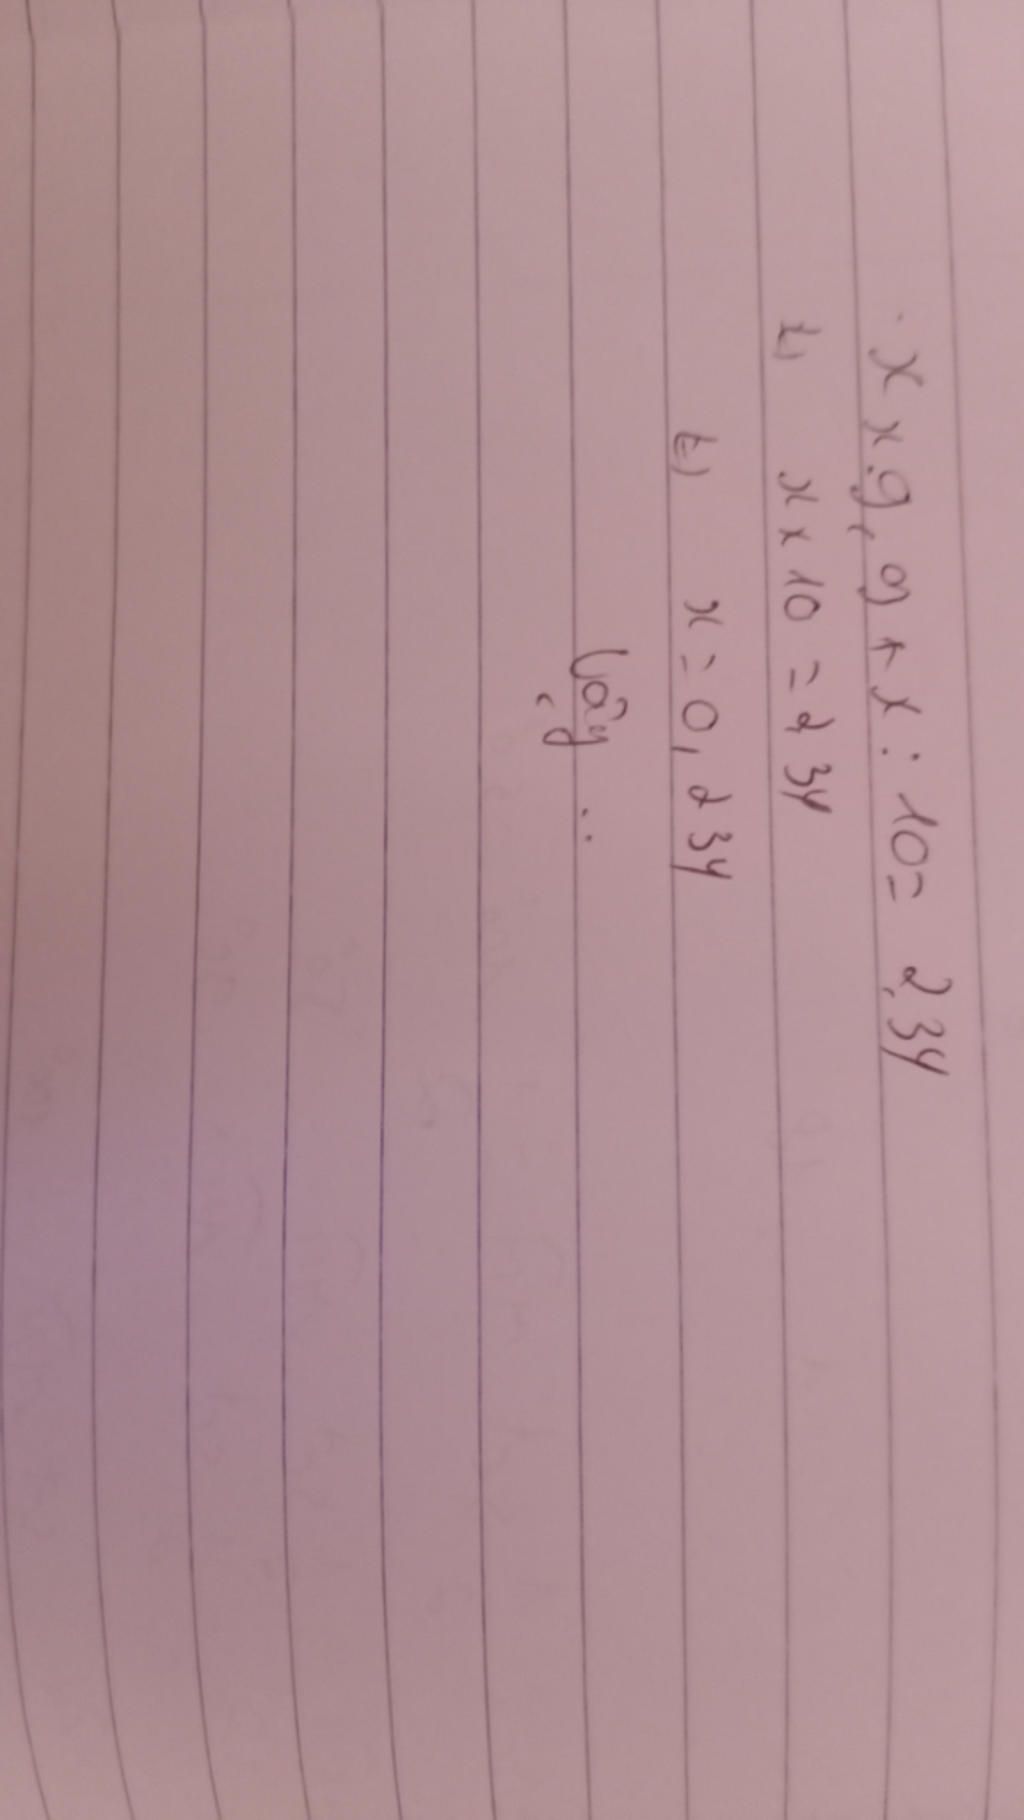 x x 9,9 + x : 10 = 2,34
t) x x 10 = 2,34
t) x = 0,234
Vậy ..